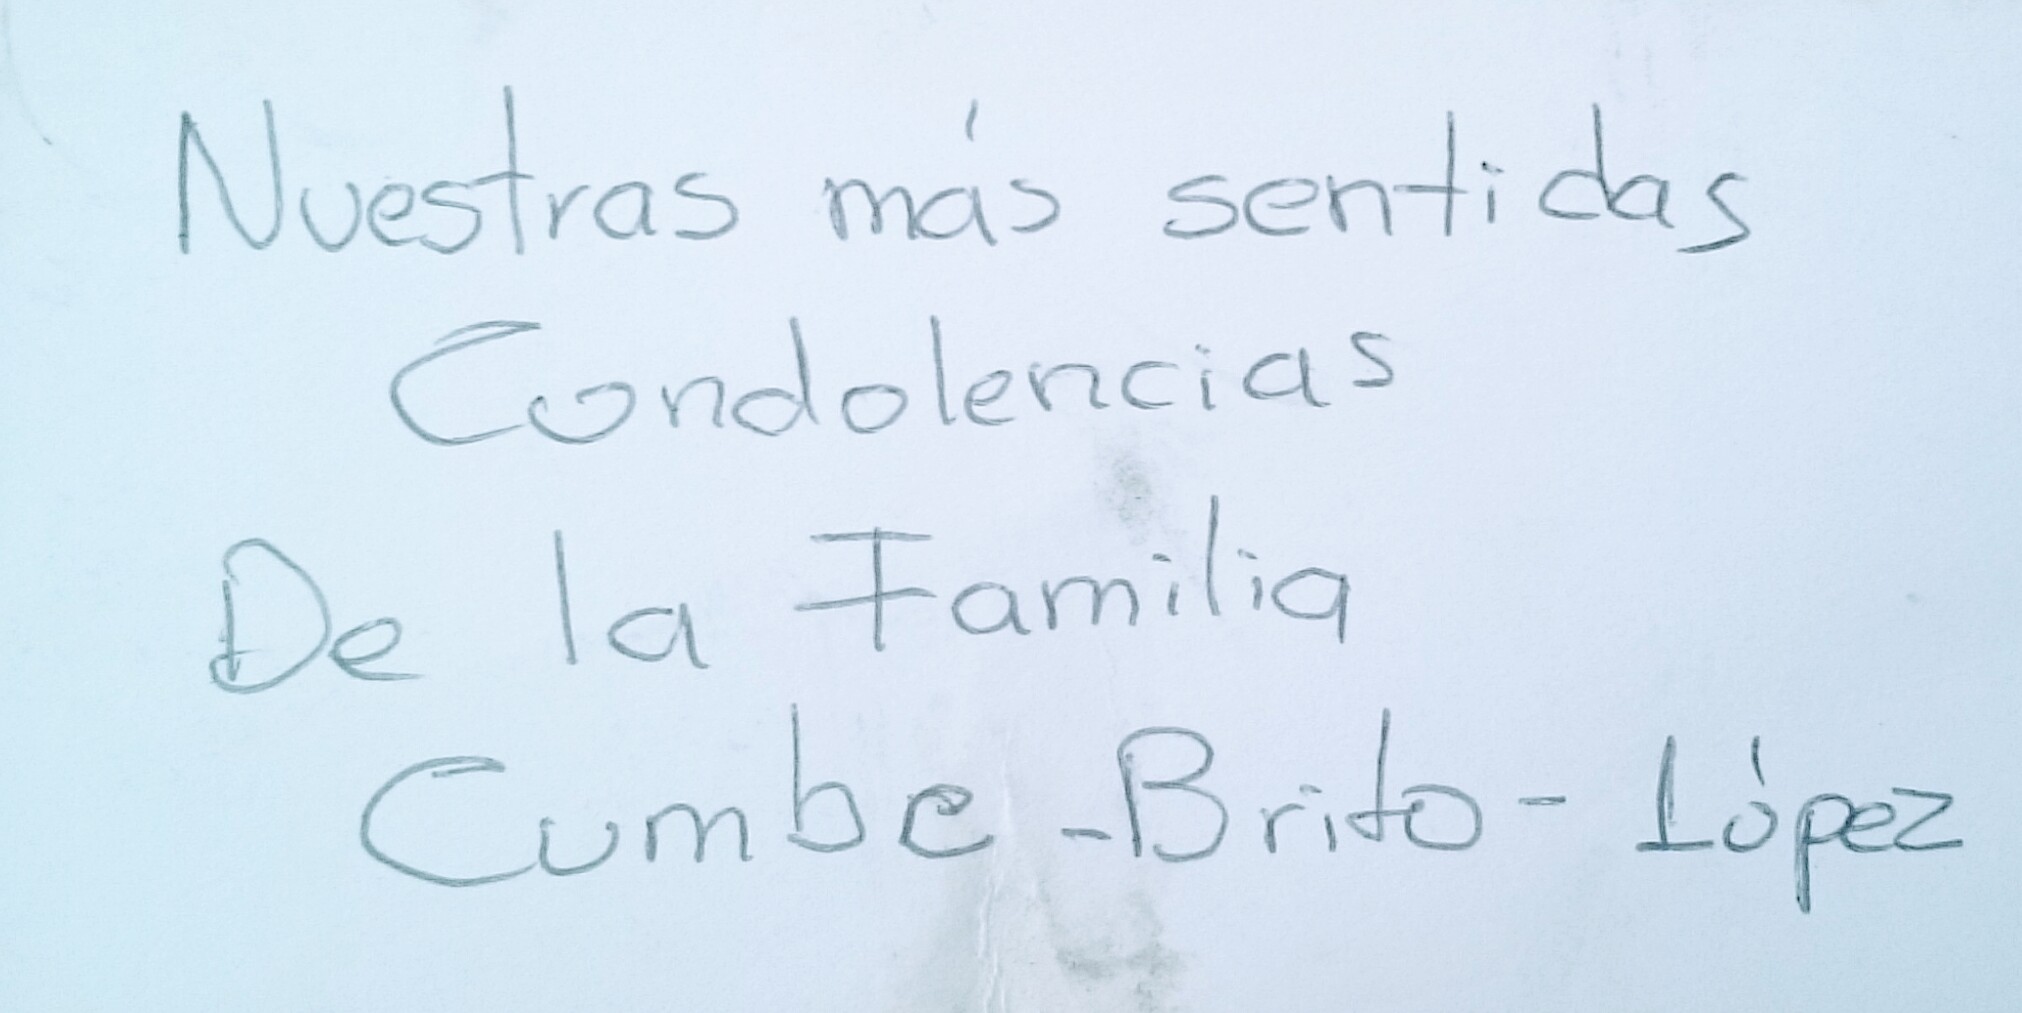 Nuestras más sentidas
Condolencias
De la Familia
Cumbe - Brito - López